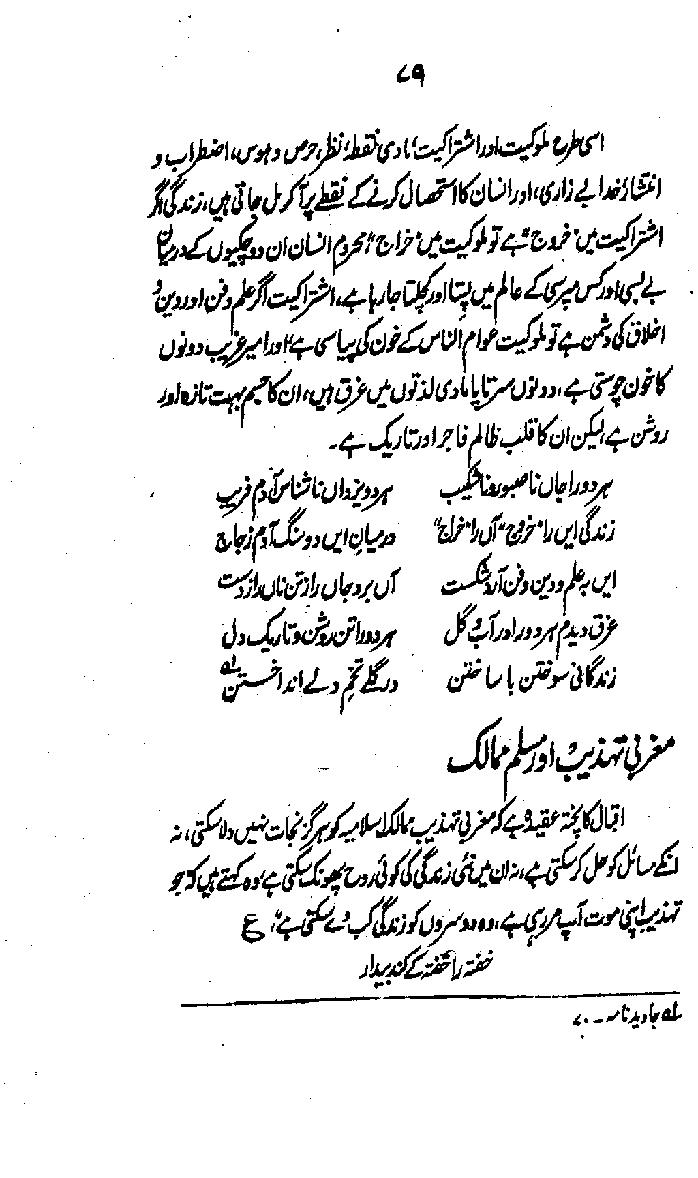 ۷۹
اسی طرح ملوکیت اور اشتراکیت، مادی نقطۂ نظر، حرص و ہوس، اضطراب و
انتشار، خدا بے زاری، اور انسان کا استحصال کرنے کے نقطے پر آکر مل جاتی ہیں، زندگی اگر
اشتراکیت میں "خروج" ہے تو ملوکیت میں "خراج"، محروم انسان ان دو چکیوں کے درمیان
بے بسی اور کس مپرسی کے عالم میں پستا اور کچلتا جا رہا ہے، اشتراکیت اگر علم و فن اور دین و
اخلاق کی دشمن ہے تو ملوکیت عوام الناس کے خون کی پیاسی ہے، اور امیر غریب دونوں
کا خون چوستی ہے، دونوں سرتاپا مادی لذتوں میں غرق ہیں، ان کا جسم بہت تازہ اور
روشن ہے، لیکن ان کا قلب ظالم فاجر اور تاریک ہے۔
ہر دو را جاں ناصبور و ناشکیب ہر دو یزداں ناشناس آدم فریب
زندگی ایں را "خروج" آں را "خراج" درمیان ایں دو سنگ آدم زجاج
ایں بہ علم و دین و فن آرد شکست آں برد جاں را ز تن ناں را ز دست
غرق دیدم ہر دو را در آب و گل ہر دو را تن روشن و تاریک دل
زندگانی سوختن با ساختن در گلے تخم دلے انداختن ؂۱
مغربی تہذیب اور مسلم ممالک
اقبال کا پختہ عقیدہ ہے کہ مغربی تہذیب ممالک اسلامیہ کو ہرگز نجات نہیں دلا سکتی، نہ
انکے مسائل کو حل کر سکتی ہے، نہ ان میں نئی زندگی کی کوئی روح پھونک سکتی ہے، وہ کہتے ہیں کہ جو
تہذیب اپنی موت آپ مر رہی ہے، وہ دوسروں کو زندگی کب دے سکتی ہے، ع
خفتہ را خفتہ کے کند بیدار
؂۱ جاوید نامہ - ۷۰